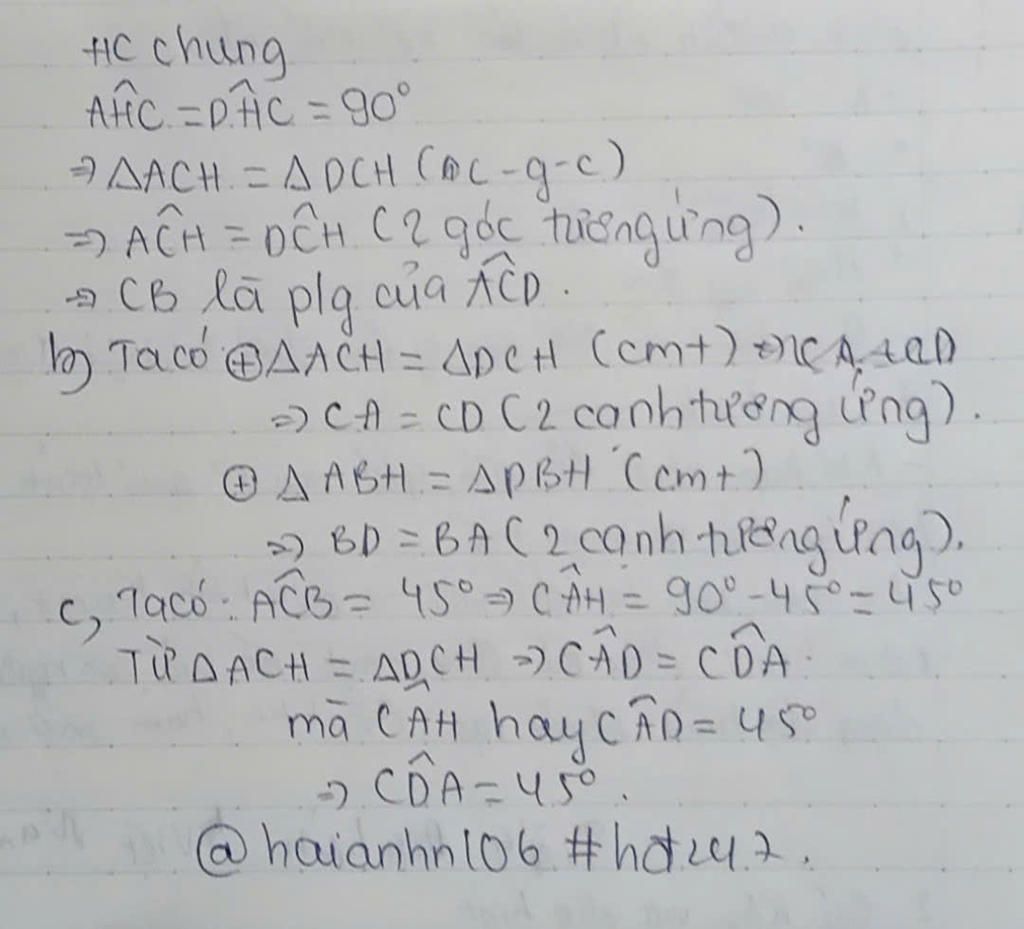 HC chung
AĤC = DĤC = 90°
⇒ ΔACH = ΔDCH (c-g-c)
⇒ AĈH = DĈH (2 góc tương ứng).
⇒ CB là p/g của AĈD.
b) Ta có ⊕ ΔACH = ΔDCH (cmt)
⇒ CA = CD (2 cạnh tương ứng).
⊕ ΔABH = ΔDBH (cmt)
⇒ BD = BA (2 cạnh tương ứng).
c, Ta có: AĈB = 45° ⇒ CÂH = 90° - 45° = 45°
Từ ΔACH = ΔDCH ⇒ CÂD = CD̂A.
mà CÂH hay CÂD = 45°
⇒ CD̂A = 45°.
@haianhn106 #hdt247.